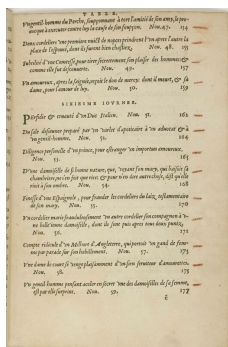 TABLE.
Vn gentil-homme du Perche, souspçonnant à tort l'amitié de son amy, le prouoque à executer contre luy la cause de son souspçon. Nou. 47. 154
Deux cordeliers vne premiere nuict de nopces prindrent l'vn apres l'autre la
place de l'espousé, dont ils furent bien chastiez. Nou. 48. 155
Subtilité d'vne Comtesse pour tirer secrettement son plaisir des hommes &
comme elle fut descouuerte. Nou. 49. 157
Vn amoureux, apres la saignée, reçoit le don de mercy: dont il meurt, & sa
dame, pour l'amour de luy. Nou. 50. 159
SIXIEME IOVRNEE.
Perfidie & cruauté d'vn Duc Italien. Nou. 51. 162
Du sale desieuner preparé par vn varlet d'apoticaire à vn aduocat & à
vn gentil-homme. Nou. 52. 164
Diligence personnelle d'vn prince, pour estranger vn importun amoureux.
Nou. 53. 165
D'vne damoiselle de si bonne nature, que, voyant son mary, qui baisoit sa
chambriere, ne s'en feit que rire, & pour n'en dire autre chose, dist qu'elle
rioit à son ombre. Nou. 54. 168
Finesse d'vne Espagnole, pour frauder les cordeliers du laiz testamentaire
de son mary. Nou. 55. 170
Vn cordelier marie frauduleusement vn autre cordelier son compagnon à vne belle ieune damoiselle, dont ils sont puis apres tous deux puniz.
Nou. 56. 171
Compte ridicule d'vn Millourt d'Angleterre, qui portoit vn gand de femme par parade sur son habillement. Nou. 57. 173
Vne dame de court se venge plaisamment d'vn sien seruiteur d'amourettes.
Nou. 58. 175
Vn gentil-homme pensant acoler en secret vne des damoiselles de sa femme,
est par elle surprins. Nou. 59. 177
é